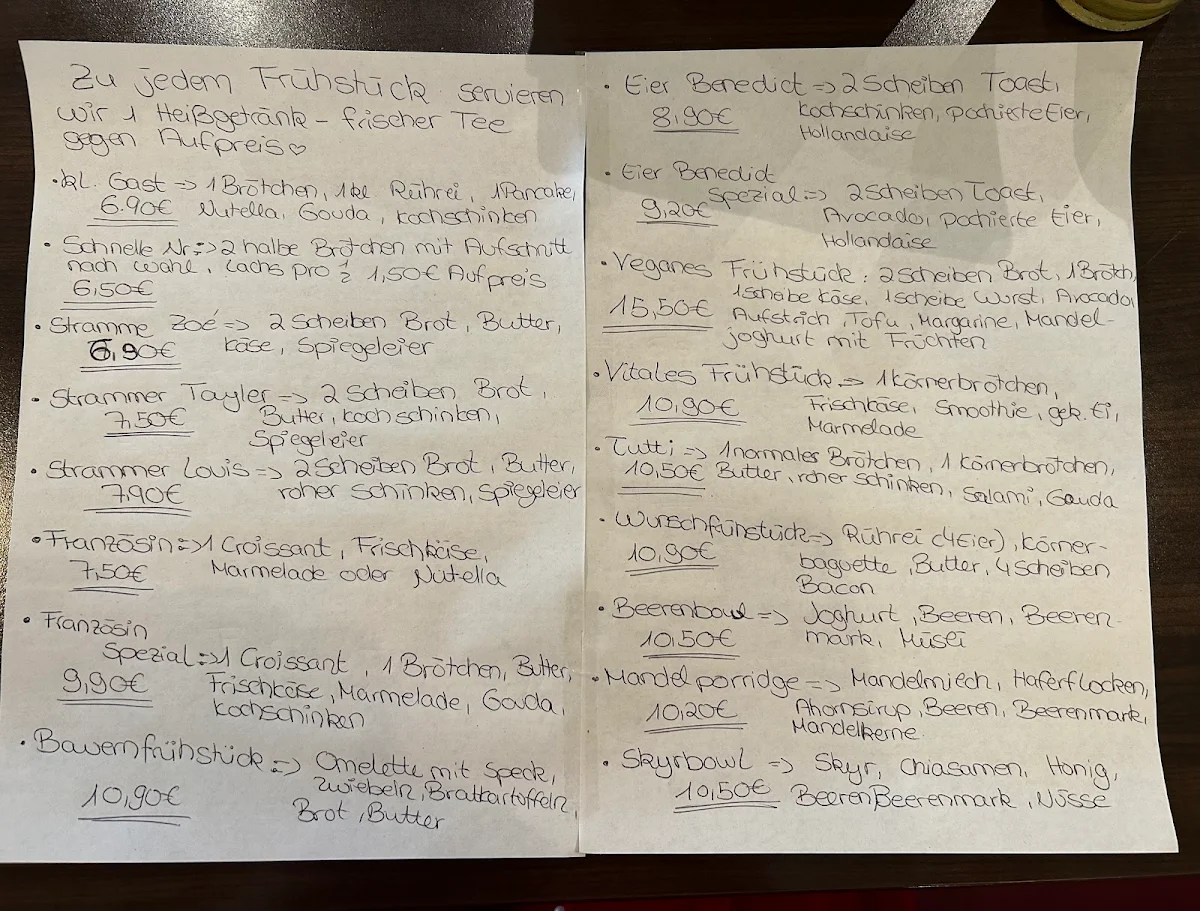 Zu jedem Frühstück servieren
wir 1 Heißgetränk – frischer Tee
gegen Aufpreis ♡
• kl. Gast => 1 Brötchen, 1 kl Rührei, 1 Pancake,
6.90€ Nutella, Gouda, Kochschinken
• Schnelle Nr. => 2 halbe Brötchen mit Aufschnitt
nach Wahl, Lachs pro ½ 1,50€ Aufpreis
6,50€
• Stramme Zoé => 2 Scheiben Brot, Butter,
6,90€ Käse, Spiegeleier
• Strammer Tayler => 2 Scheiben Brot,
7,50€ Butter, Kochschinken,
Spiegeleier
• Strammer Louis => 2 Scheiben Brot, Butter,
7,90€ roher Schinken, Spiegeleier
• Französin => 1 Croissant, Frischkäse,
7,50€ Marmelade oder Nutella
• Französin
Spezial => 1 Croissant, 1 Brötchen, Butter,
9,90€ Frischkäse, Marmelade, Gouda,
Kochschinken
• Bauernfrühstück => Omelette mit Speck,
Zwiebeln, Bratkartoffeln,
10,90€ Brot, Butter
• Eier Benedict => 2 Scheiben Toast,
8,90€ Kochschinken, pochierte Eier,
Hollandaise
• Eier Benedict
Spezial => 2 Scheiben Toast,
9,20€ Avocado, pochierte Eier,
Hollandaise
• Veganes Frühstück: 2 Scheiben Brot, 1 Brötch,
1 Scheibe Käse, 1 Scheibe Wurst, Avocado,
15,50€ Aufstrich, Tofu, Margarine, Mandel-
joghurt mit Früchten
• Vitales Frühstück => 1 Körnerbrötchen,
10,90€ Frischkäse, Smoothie, gek. Ei,
Marmelade
• Tutti => 1 normales Brötchen, 1 Körnerbrötchen,
10,50€ Butter, roher Schinken, Salami, Gouda
• Wunschfühstück => Rührei (4 Eier), Körner-
10,90€ baguette, Butter, 4 Scheiben
Bacon
• Beerenbowl => Joghurt, Beeren, Beeren-
10,50€ mark, Müsli
• Mandelporridge => Mandelmilch, Haferflocken,
10,20€ Ahornsirup, Beeren, Beerenmark,
Mandelkerne
• Skyrbowl => Skyr, Chiasamen, Honig,
10,50€ Beeren, Beerenmark, Nüsse